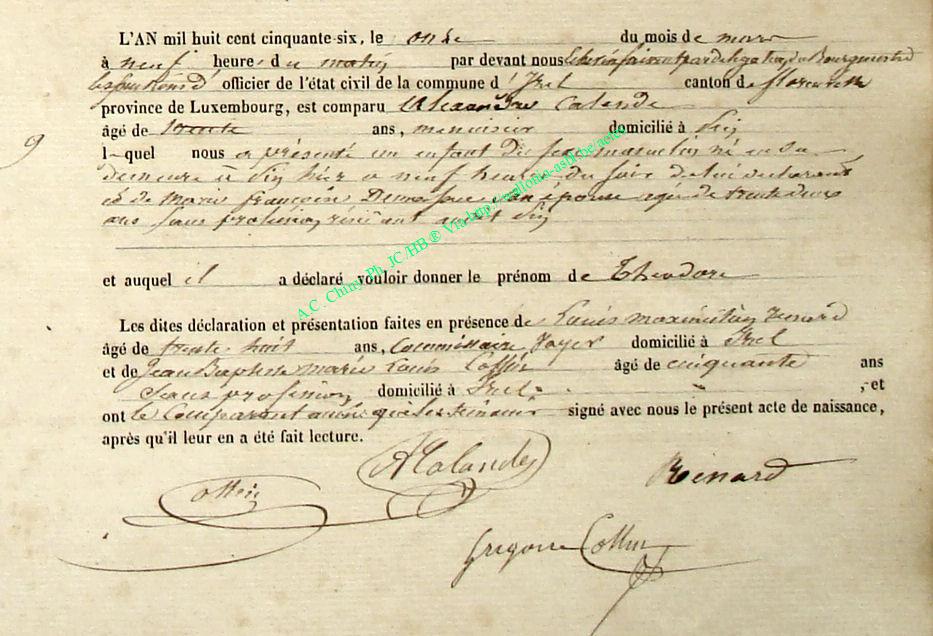 L'AN mil huit cent cinquante-six, le onze du mois de mars
à neuf heures du matin par devant nous Echevin faisant par délégation du Bourgmestre
les fonctions d' officier de l'état civil de la commune d'Izel canton de florenville
province de Luxembourg, est comparu Alexandre Calande
âgé de trente ans, menuisier domicilié à Pin
9
lequel nous a présenté un enfant du sexe masculin né en sa
demeure à Pin hier a neuf heures du soir de lui déclarant
et de Marie françoise son épouse agée de trente deux
ans sans profession résidant audit Pin
et auquel il a déclaré vouloir donner le prénom de Théodore
Les dites déclaration et présentation faites en présence de Louis Maximilien Renard
âgé de trente huit ans, Commissaire Voyer domicilié à Izel
et de Jean Baptiste Marie Louis Collin âgé de cinquante ans
sans profession domicilié à Izel ; et
ont le Comparant ainsi que les témoins signé avec nous le présent acte de naissance,
après qu'il leur en a été fait lecture.
A Calande
Collin
Renard
Gregoire Collin
A.C. Chiny Ph. JC/HB ® Via http://wallonia-asbl.be/actes